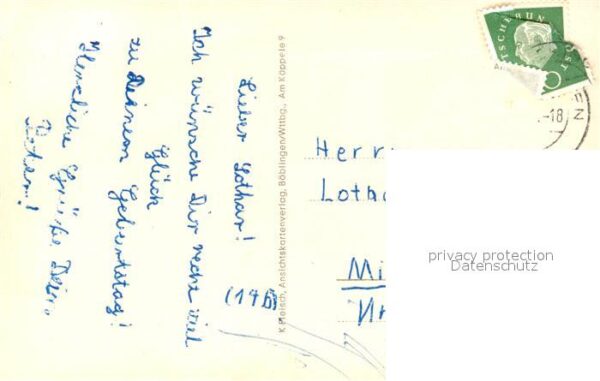 Lieber Lothar!
Ich wünsche Dir recht viel
Glück
zu Deinem Geburtstag!
Herzliche Grüße Dein
K Fleisch, Ansichtskartenverlag, Böblingen/Wttbg., Am Käppele 9
(14b)
Herrn
Loth
Mi
privacy protection
Datenschutz
-18